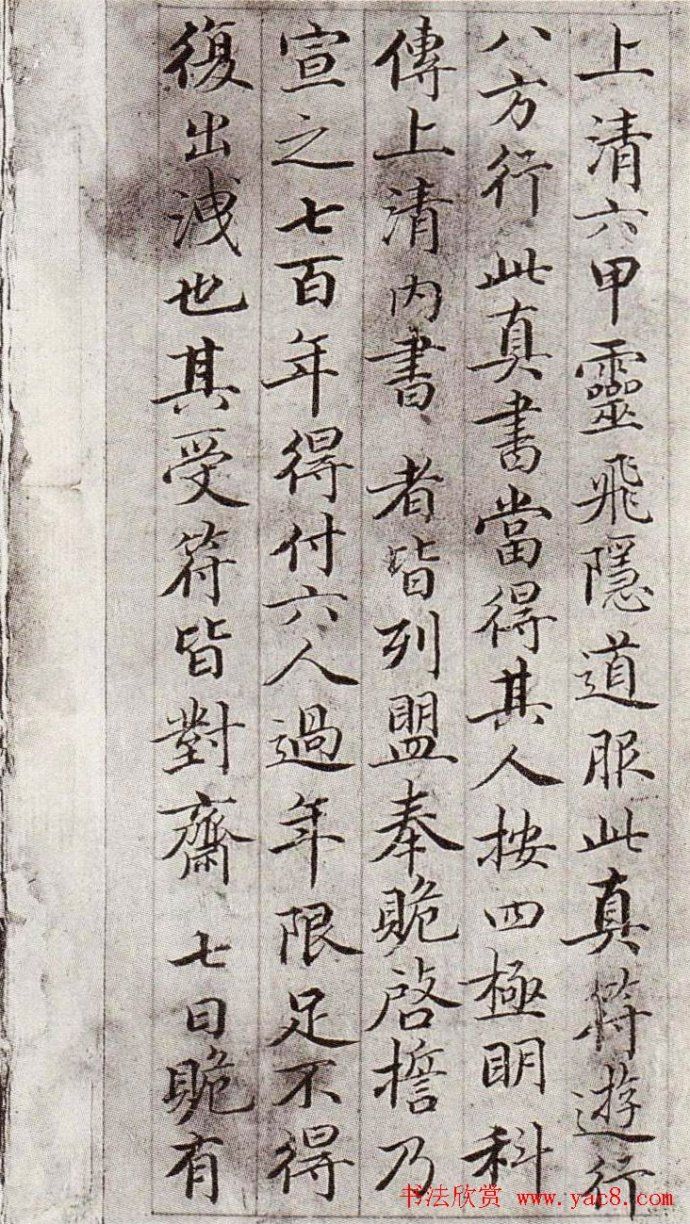 上清六甲靈飛隱道服此真符遊行
八方行此真書當得其人按四極明科
傳上清內書者皆列盟奉賝啓擔乃
宣之七百年得付六人過年限足不得
復出洩也其受符皆對齋七日賝有
书法欣赏 www.yac8.com